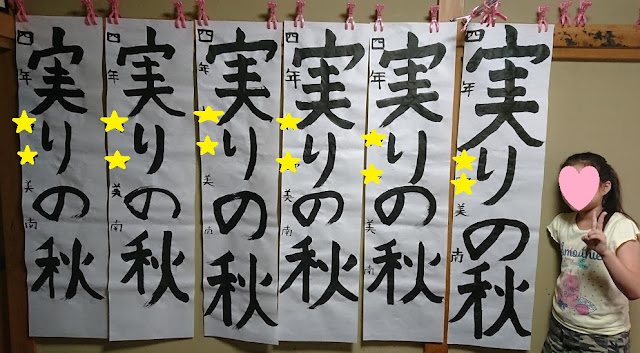 実りの秋
四年 美南
実りの秋
四年 美南
実りの秋
四年 美南
実りの秋
四年 美南
実りの秋
四年 美南
実りの秋
四年 美南